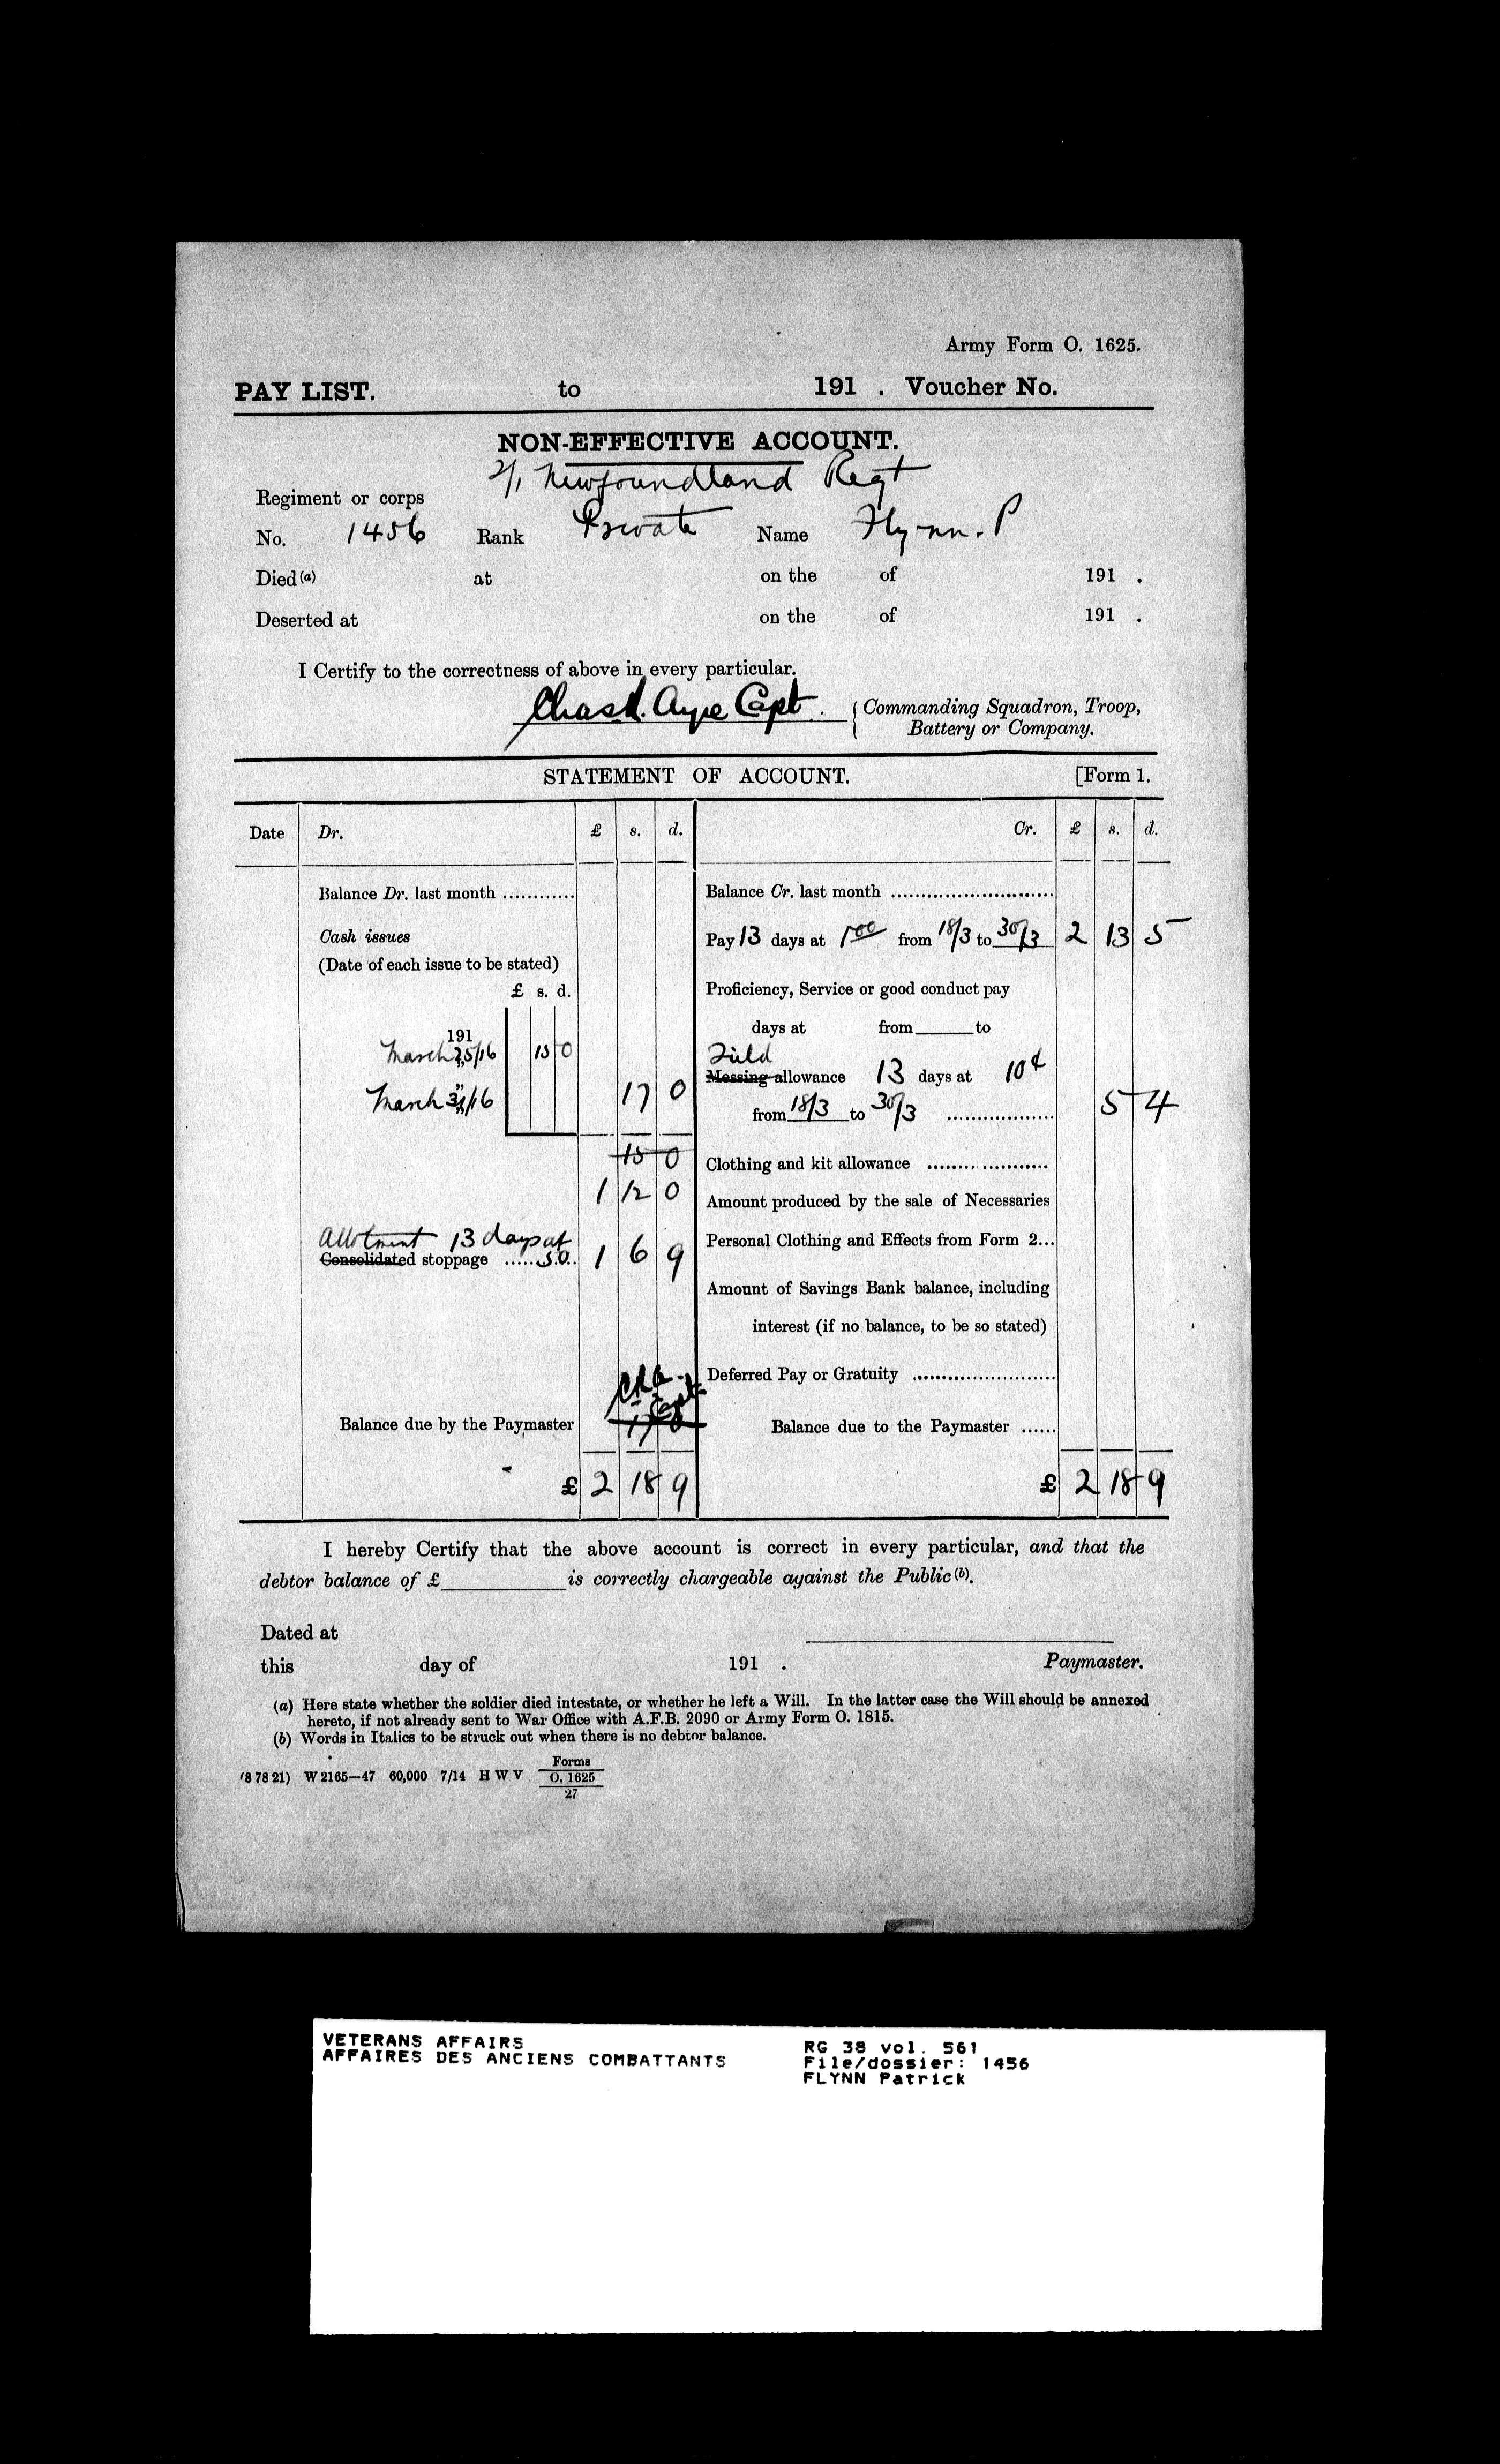 Army Form O. 1625.
PAY LIST. to 191 . Voucher No.
NON-EFFECTIVE ACCOUNT.
Regiment or corps 2/1 Newfoundland Regt
No. 1456 Rank Private Name Flynn. P
Died (a) at on the of 191 .
Deserted at on the of 191 .
I Certify to the correctness of above in every particular.
Chas. Ayre Capt. { Commanding Squadron, Troop,
Battery or Company.
STATEMENT OF ACCOUNT. [Form 1.
Date Dr. £ s. d. Cr. £ s. d.
Balance Dr. last month ............ Balance Cr. last month ............................
Cash issues
Pay 13 days at 1 00 from 18/3 to 30/3 2 13 5
(Date of each issue to be stated)
£ s. d. Proficiency, Service or good conduct pay
191 days at from to
March 25/16 15 0 Field
Messing allowance 13 days at 10¢
March 31/16 17 0 from 18/3 to 30/3 ................... 5 4
15 0 Clothing and kit allowance .....................
1 12 0 Amount produced by the sale of Necessaries
Allotment 13 days at Personal Clothing and Effects from Form 2...
Consolidated stoppage ...... 50.. 1 6 9
Amount of Savings Bank balance, including
interest (if no balance, to be so stated)
CRA. Capt Deferred Pay or Gratuity .........................
Balance due by the Paymaster 17 0 Balance due to the Paymaster ......
£ 2 18 9 £ 2 18 9
I hereby Certify that the above account is correct in every particular, and that the
debtor balance of £ is correctly chargeable against the Public (b).
Dated at
this day of 191 . Paymaster.
(a) Here state whether the soldier died intestate, or whether he left a Will. In the latter case the Will should be annexed
hereto, if not already sent to War Office with A.F.B. 2090 or Army Form O. 1815.
(b) Words in Italics to be struck out when there is no debtor balance.
(8 78 21) W 2165—47 60,000 7/14 H W V Forms
O. 1625
27
VETERANS AFFAIRS RG 38 vol. 561
AFFAIRES DES ANCIENS COMBATTANTS File/dossier: 1456
FLYNN Patrick